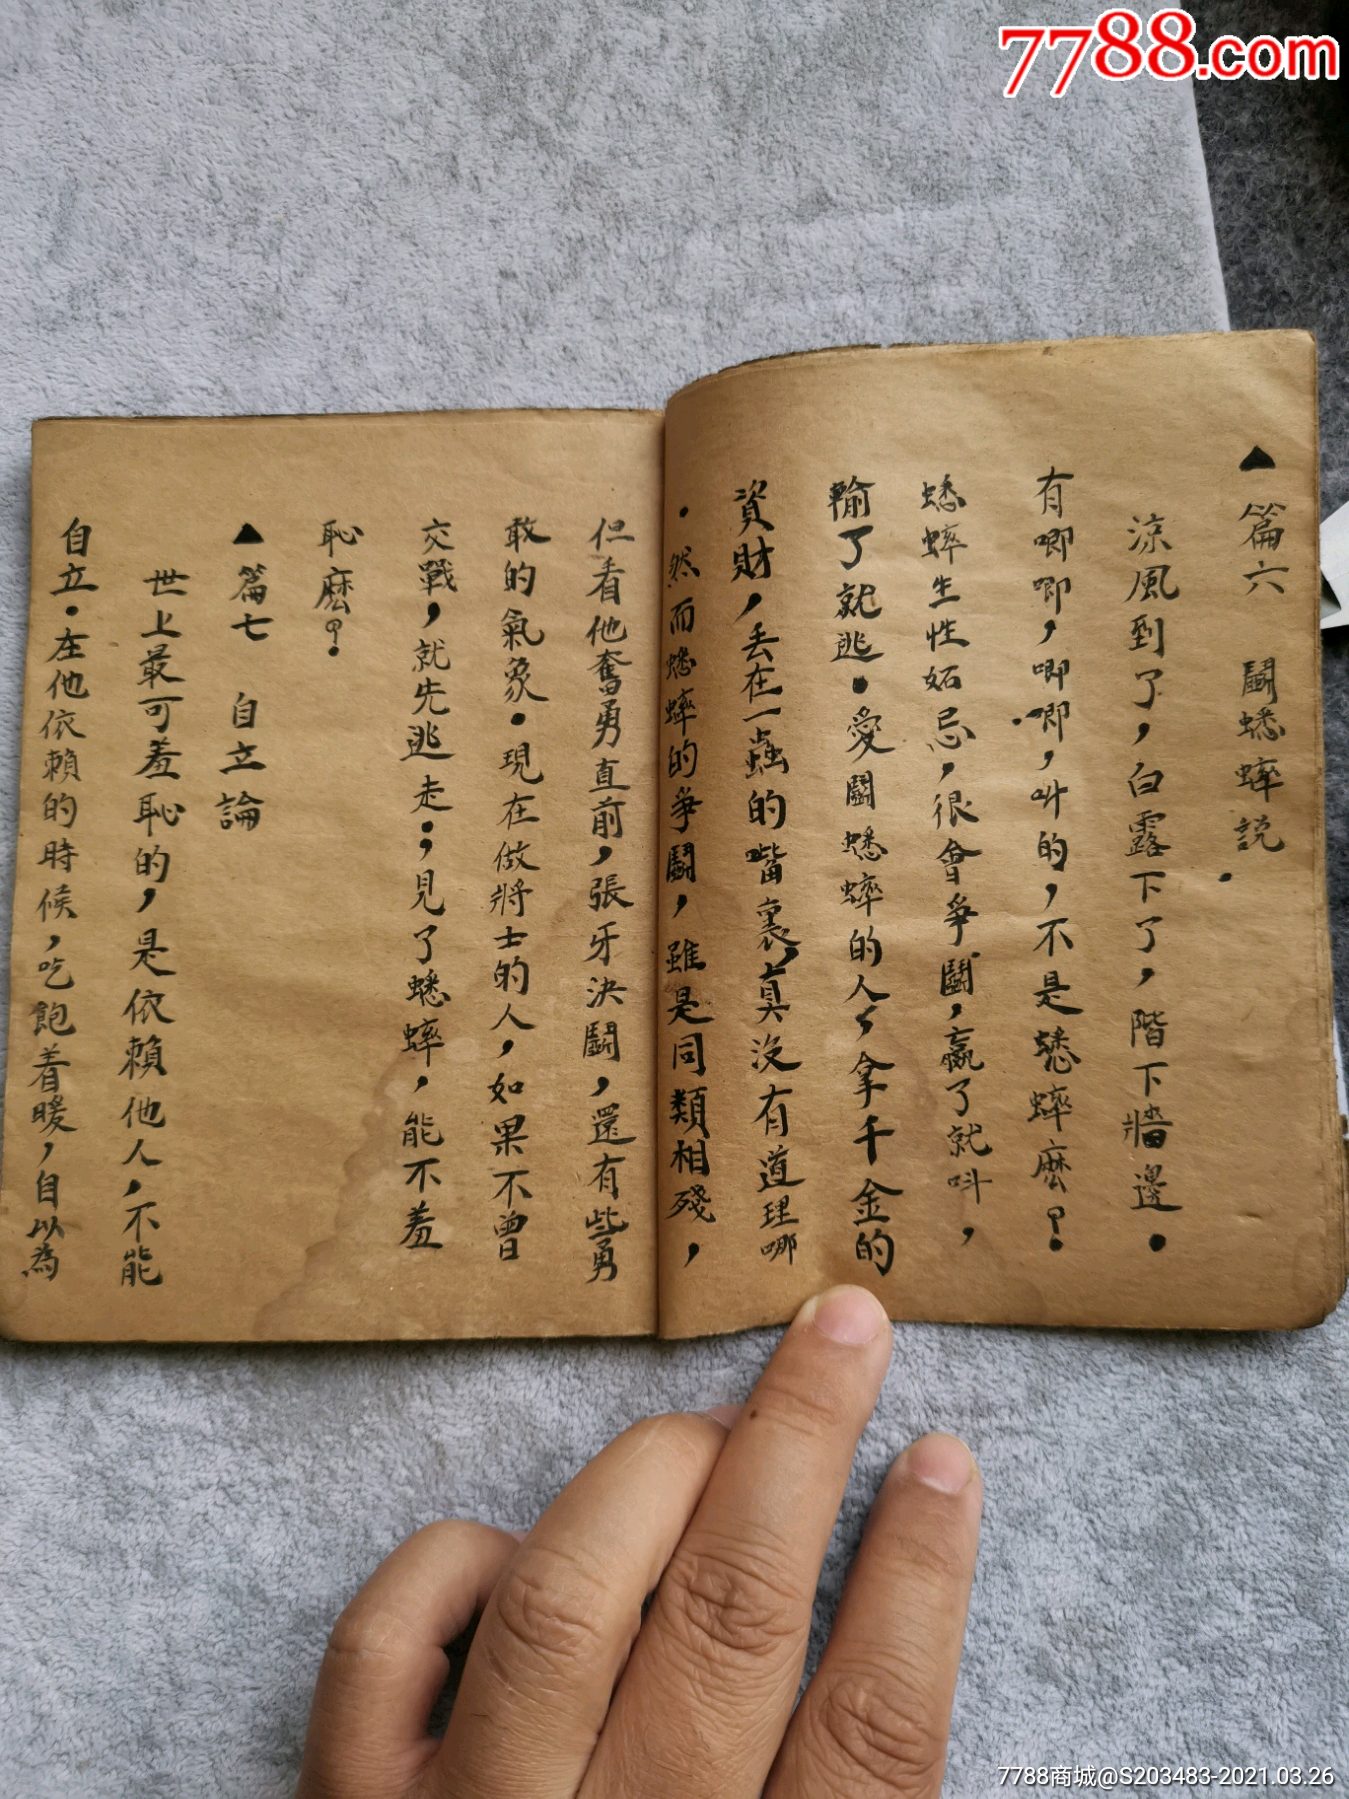 7788.com
▲篇六 鬭蟋蟀説.
涼風到了,白露下了,階下牆邊.
有唧唧,唧唧,叫的,不是蟋蟀麽?
蟋蟀生性妬忌,很會爭鬭,贏了就叫,
輸了就逃.愛鬭蟋蟀的人,拿千金的
資財,丢在一蟲的嘴裏,真没有道理哪
.然而蟋蟀的爭鬭,雖是同類相殘,
但看他奮勇直前,張牙決鬭,還有些勇
敢的氣象.現在做將士的人,如果不曾
交戰,就先逃走;見了蟋蟀,能不羞
恥麽?
▲篇七 自立論
世上最可羞恥的,是依賴他人,不能
自立.在他依賴的時候,吃飽着暖,自以為
7788商城@S203483-2021.03.26